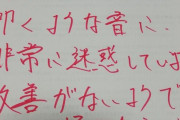 叩くような音に、
非常に迷惑してい
改善がないようで